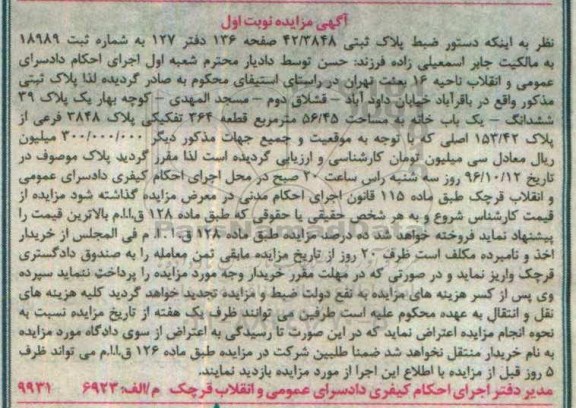 آگهی مزایده نوبت اول
نظر به اینکه دستور ضبط پلاک ثبتی ۴۲/۳۸۴۸ صفحه ۱۳۶ دفتر ۱۲۷ به شماره ثبت ۱۸۹۸۹
به مالکیت جابر اسمعیلی زاده فرزند: حسن توسط دادیار محترم شعبه اول اجرای احکام دادسرای
عمومی و انقلاب ناحیه ۱۶ بعثت تهران در راستای استیفای محکوم به صادر گردیده لذا پلاک ثبتی
مذکور واقع در باقرآباد خیابان داود آباد – قشلاق دوم – مسجد المهدی – کوچه بهار یک پلاک ۳۹
ششدانگ – یک باب خانه به مساحت ۵۶/۴۵ مترمربع قطعه ۳۶۴ تفکیکی پلاک ۳۸۴۸ فرعی از
پلاک ۱۵۳/۴۲ اصلی که با توجه به موقعیت و جمیع جهات مذکور دیگر ۳۰۰/۰۰۰/۰۰۰ میلیون
ریال معادل سی میلیون تومان کارشناسی و ارزیابی گردیده است لذا مقرر گردید پلاک موصوف در
تاریخ ۹۶/۱۰/۱۲ روز سه شنبه راس ساعت ۲۰ صبح در محل اجرای احکام کیفری دادسرای عمومی
و انقلاب قرچک طبق ماده ۱۱۵ قانون اجرای احکام مدنی در معرض مزایده گذاشته شود مزایده از
قیمت کارشناس شروع و به هر شخص حقیقی یا حقوقی که طبق ماده ۱۲۸ ق.ا.ا.م بالاترین قیمت را
پیشنهاد نماید فروخته خواهد شد ده درصد مزایده طبق ماده ۱۲۸ ق . ا . ا . م فی المجلس از خریدار
اخذ و نامبرده مکلف است ظرف ۲۰ روز از تاریخ مزایده مابقی ثمن معامله را به صندوق دادگستری
قرچک واریز نماید و در صورتی که در مهلت مقرر خریدار وجه مورد مزایده را پرداخت ننماید سپرده
وی پس از کسر هزینه های مزایده به نفع دولت ضبط و مزایده تجدید خواهد گردید کلیه هزینه های
نقل و انتقال به عهده محکوم علیه است طرفین می توانند ظرف یک هفته از تاریخ مزایده نسبت به
نحوه انجام مزایده اعتراض نماید که در این صورت تا رسیدگی به اعتراض از سوی دادگاه مورد مزایده
به نام خریدار منتقل نخواهد شد ضمنا طلبین شرکت در مزایده طبق ماده ۱۲۶ ق.ا.ا.م می تواند ظرف
۵ روز قبل از مزایده با اطلاع این اجرا از مورد مزایده بازدید نمایند.
مدیر دفتر اجرای احکام کیفری دادسرای عمومی و انقلاب قرچک م/الف: ۶۹۲۳ ۹۹۳۱